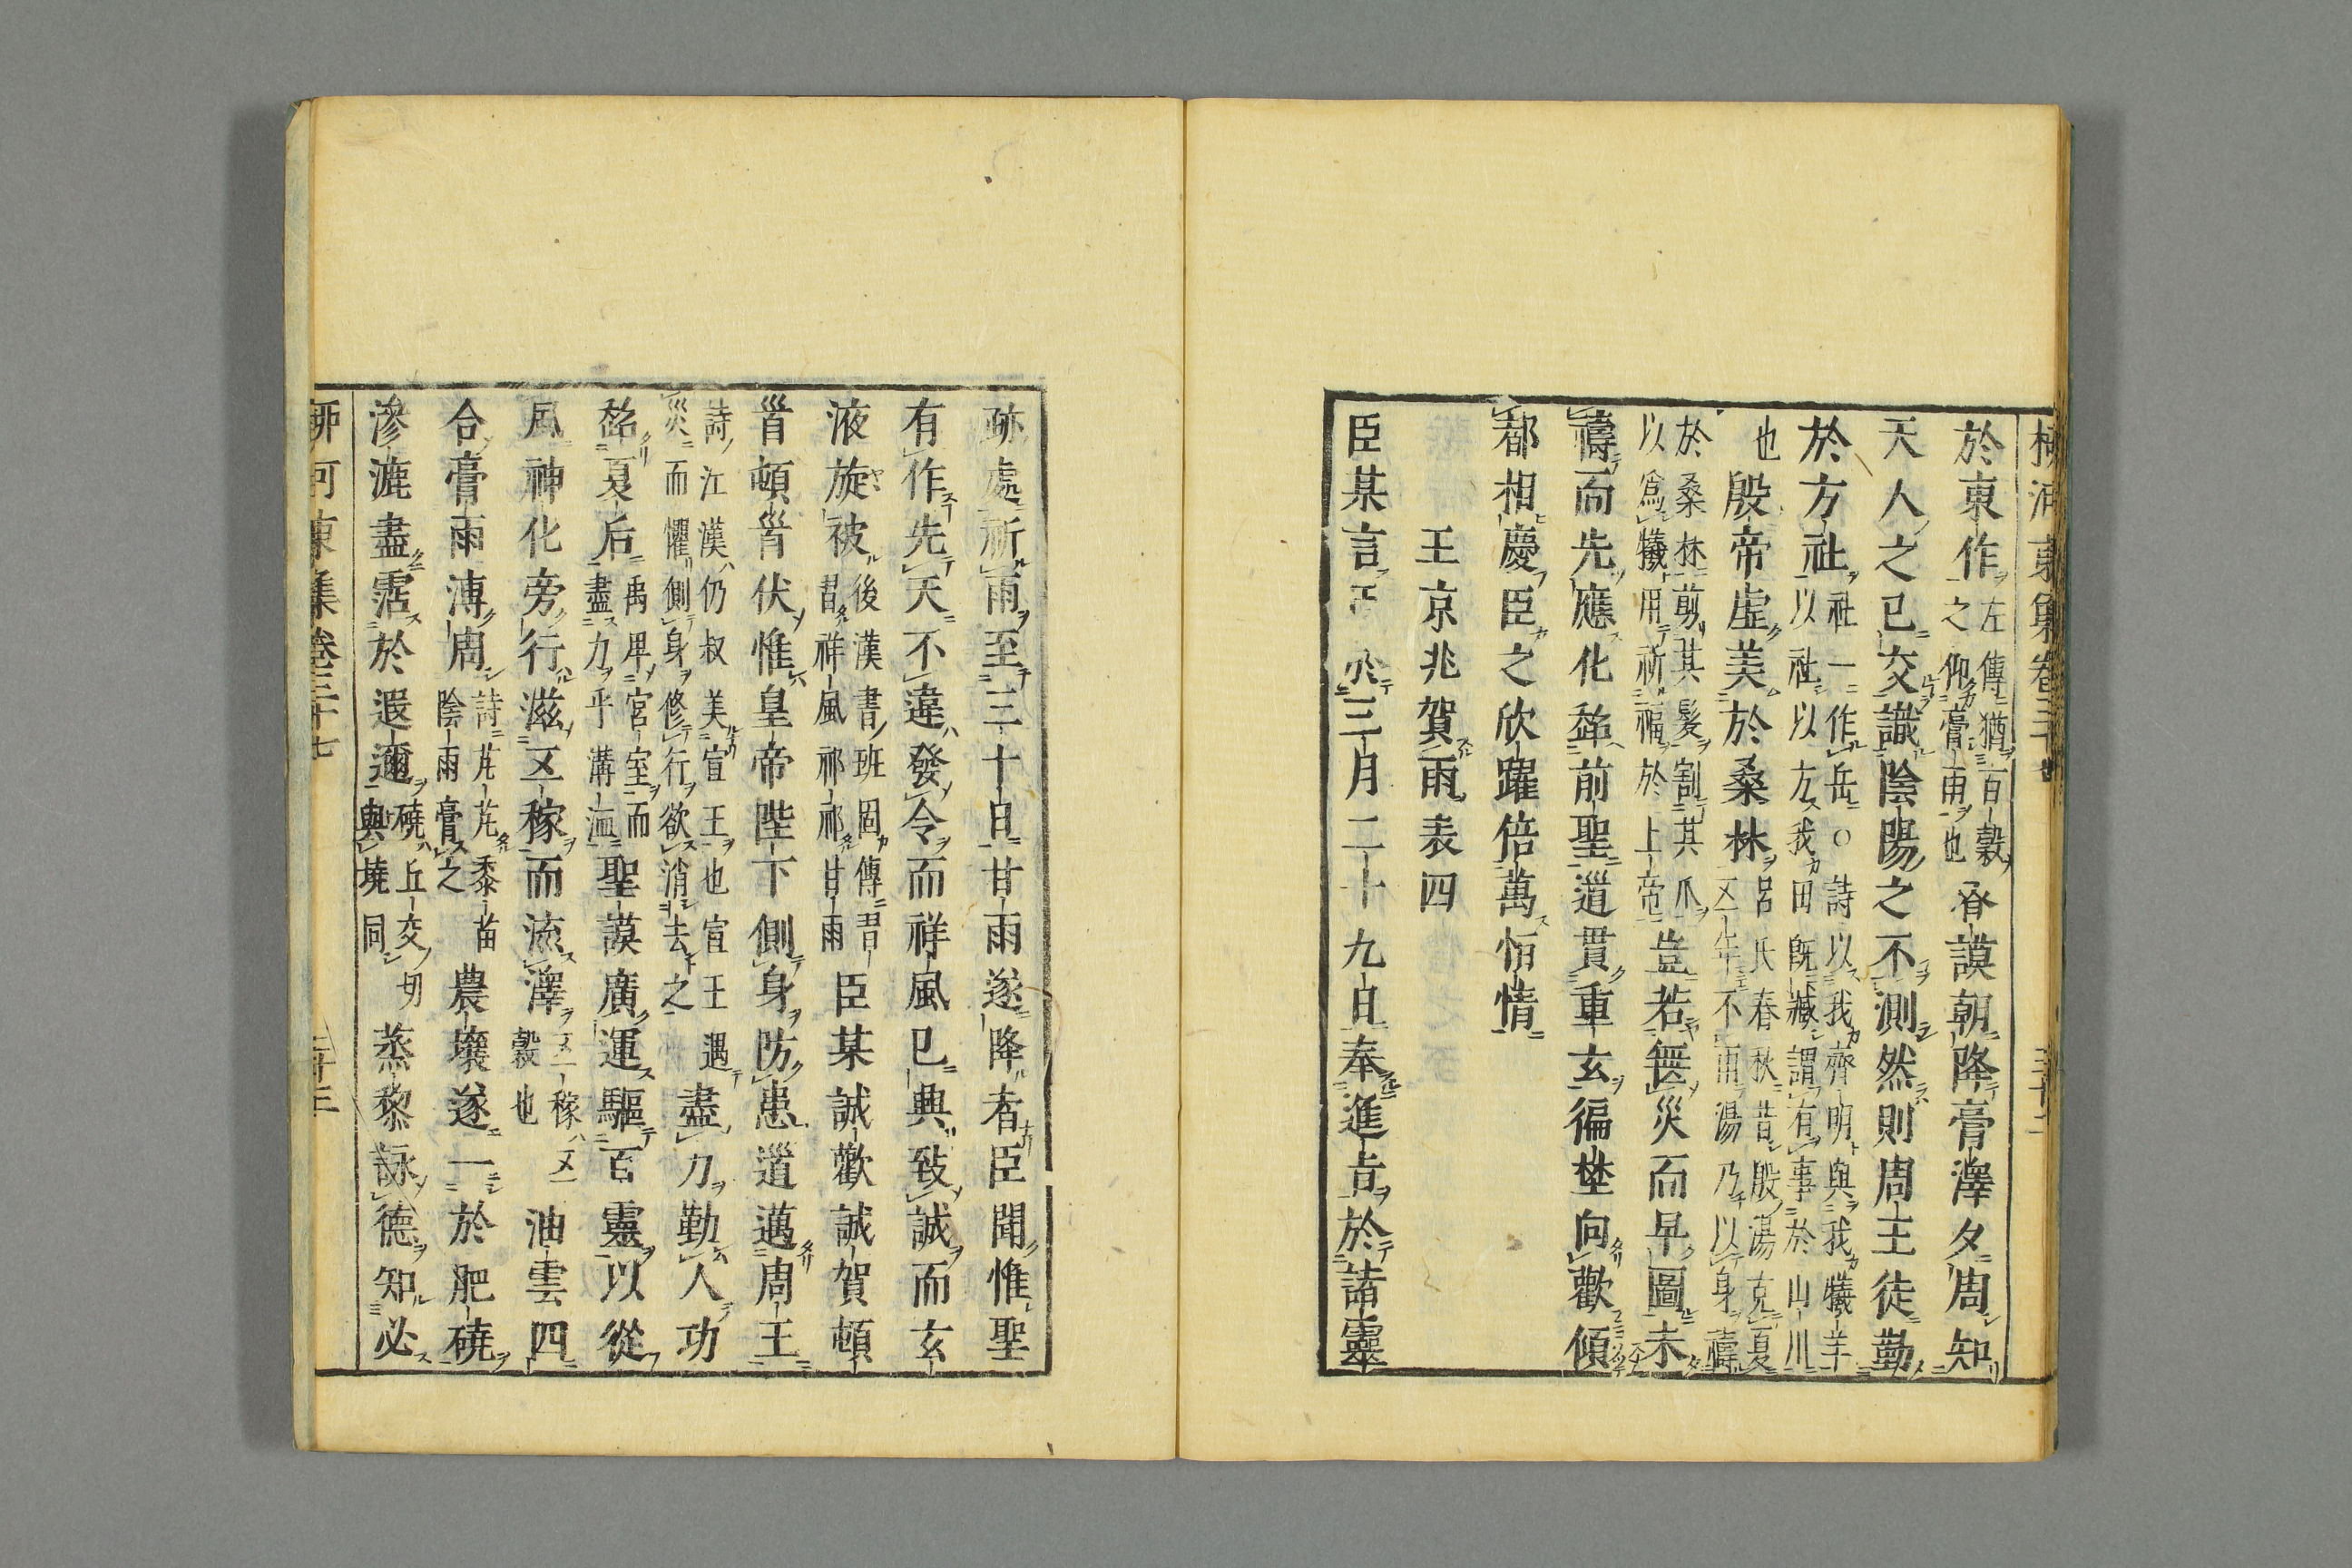 柳河東集卷三十七 三十二
於東作左傳猶百穀之仰膏雨也睿謨朝降膏澤夕周知
天人之已交識陰陽之不測然則周王徒勤
於方社社一作岳○詩以我齊明與我犧羊以社以方我田既臧謂有事於山川
也殷帝虛美於桑林呂氏春秋昔殷湯克夏五年不雨湯乃以身禱
於桑林剪其髮割其爪以爲犧用祈福於上帝豈若無災而早圖未
禱而先應化超前聖道貫重玄徧埜向歡傾
都相慶臣之欣躍倍萬恒情
王京兆賀雨表四
臣某言 三月二十九日奉進旨於諸靈
跡處祈雨至三十日甘雨遂降者臣聞惟聖
有作先天不違發令而祥風已興致誠而玄
液旋被後漢書班固傳習習祥風祁祁甘雨臣某誠歡誠賀頓
首頓首伏惟皇帝陛下側身防患道邁周王
詩江漢仍叔美宣王也宣王遇災而懼側身修行欲消去之盡力勤人功
超夏后禹卑宮室而盡力乎溝洫聖謨廣運驅百靈以從
風神化旁行滋五稼而流澤五稼五穀也油雲四
合膏雨溥周詩芃芃黍苗陰雨膏之農壤遂一於肥磽
滲漉盡霑於遐邇磽丘交切與墝同蒸黎詠德知必
柳河東集卷三十七 三十三